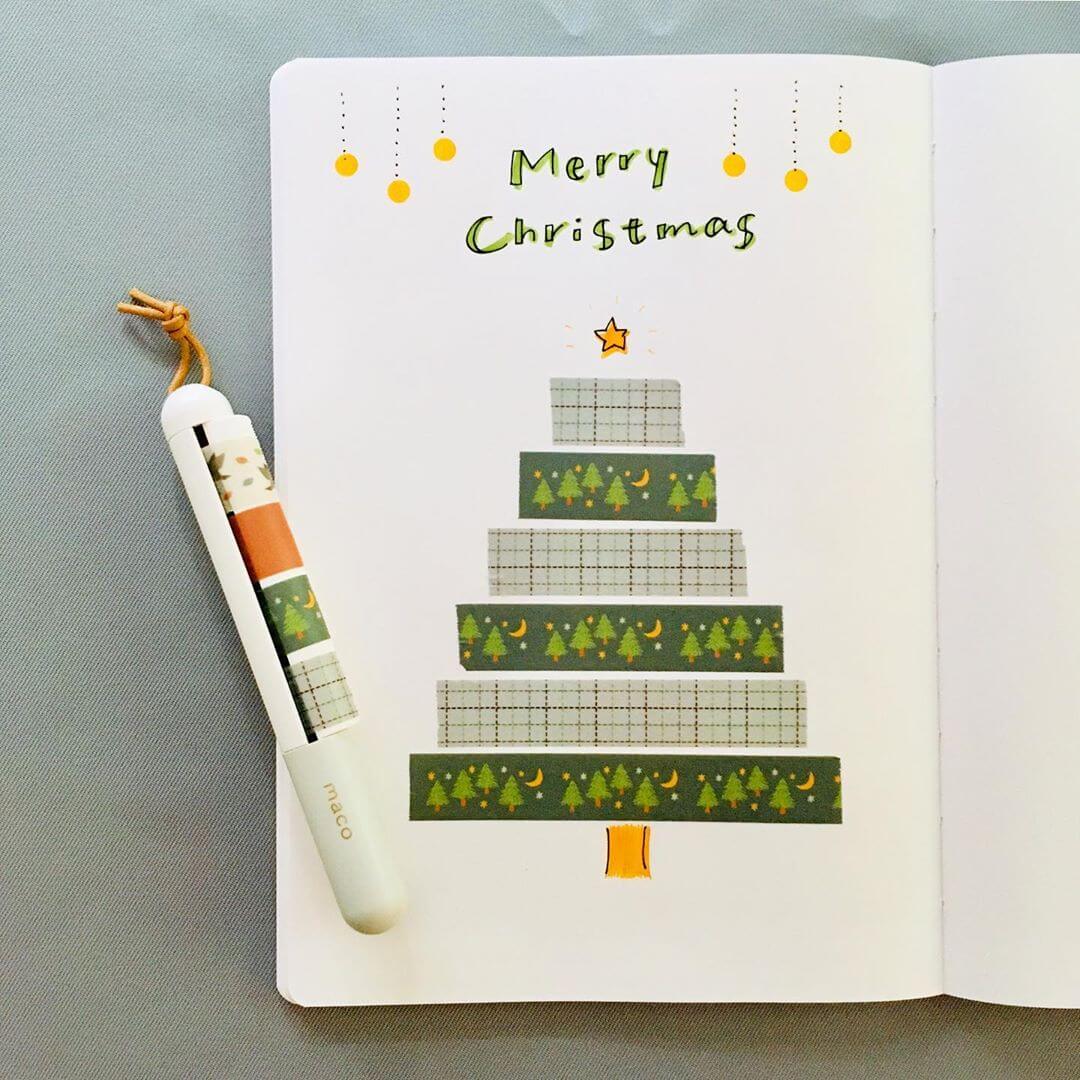 Merry
Christmas
maco